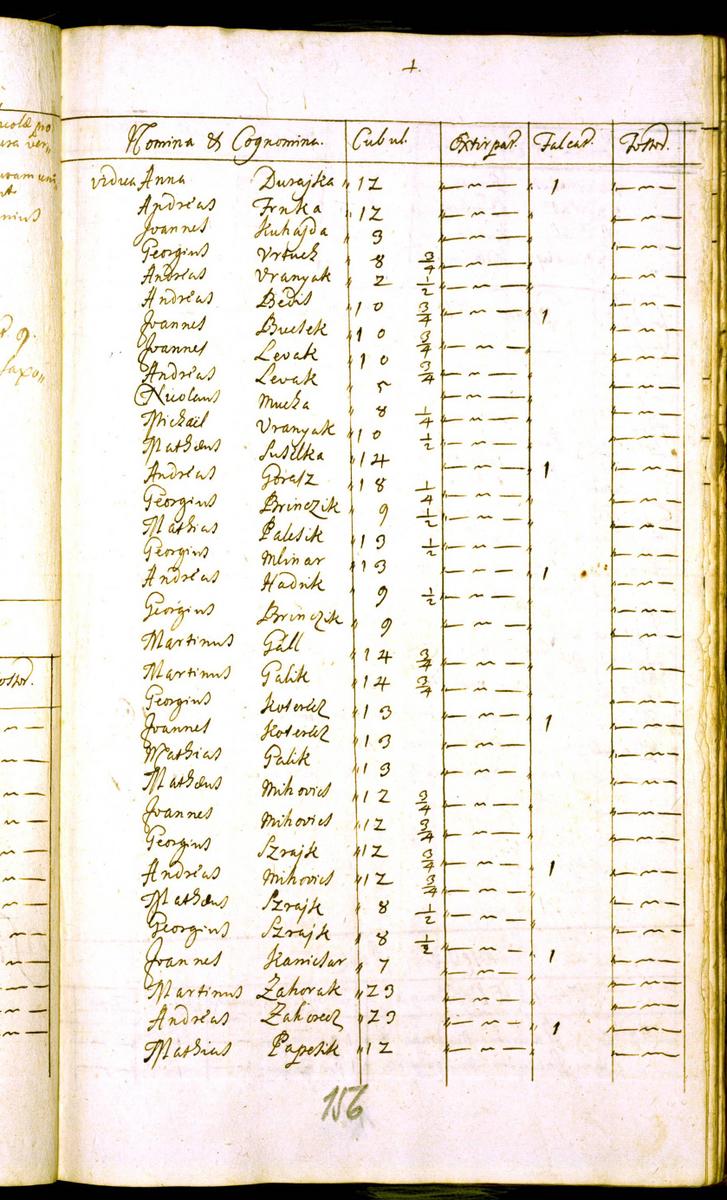 Nomina & Cognomina. Cubul. Extirpat. Falcat.
vidua Anna Durajka 12 1
Andreas Frnka 12
Joannes Kuhajda 3
Georgius Vrtuch 8 3/4
Andreas Vranyak 2 1/2
Andreas Bedis 10 3/4
Joannes Buchek 10 3/4 1
Joannes Levak 10 3/4
Andreas Levak 5
Nicolaus Mucha 8 1/4
Michael Vranyak 10 1/2
Mathaeus Susilka 14
Andreas Gorasz 18 1/4 1
Georgius Brinczik 9 1/2
Mathias Palesik 13 1/2
Georgius Mlinar 13
Andreas Hadrik 9 1/2 1
Georgius Brinczik 9
Martinus Gall 14 3/4
Martinus Galik 14 3/4
Georgius Koterecz 13
Joannes Koterecz 13 1
Mathias Galik 13
Mathaeus Mihovics 12 3/4
Joannes Mihovics 12 3/4
Georgius Szrajk 12 3/4
Andreas Mihovics 12 3/4 1
Mathaeus Szrajk 8 1/2
Georgius Szrajk 8 1/2
Joannes Kanicsar 7 1
Martinus Zahorak 23
Andreas Zahorecz 23
Mathias Papesik 12 1
156